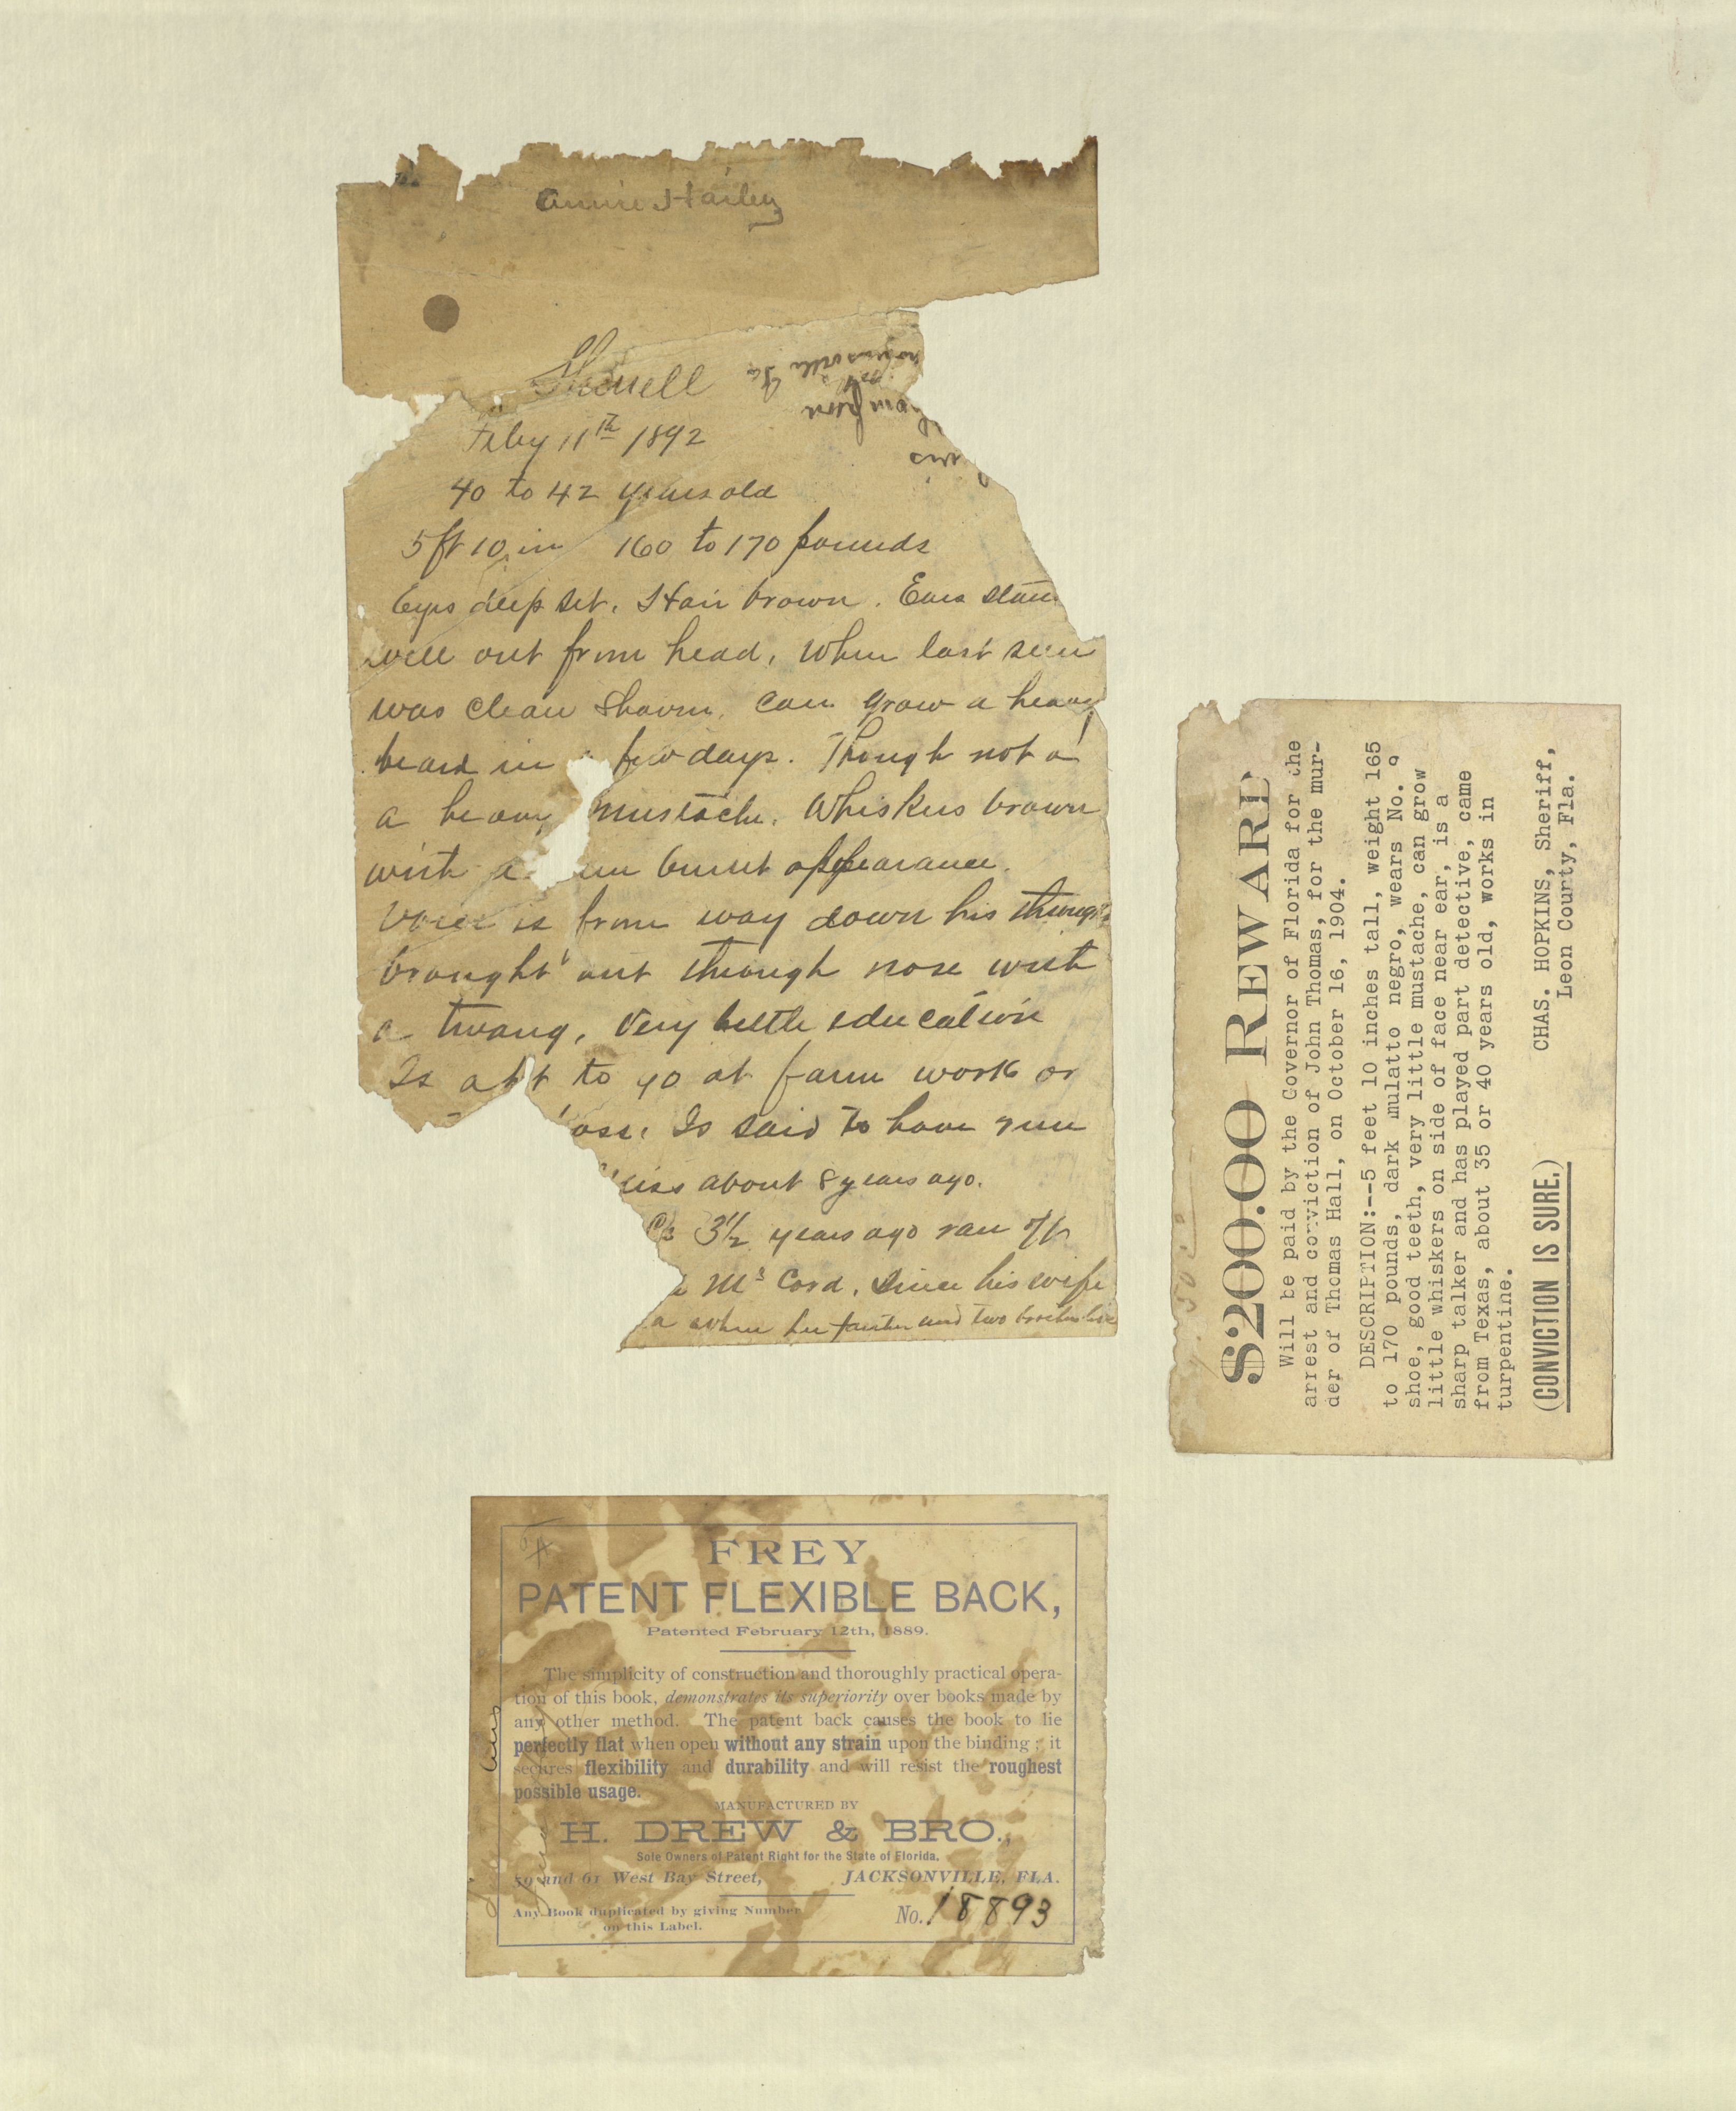 Annie Hailey
Feby 11th 1892
40 to 42 years old
5 ft 10 in 160 to 170 pounds
Eyes deep set. Hair brown. Ears stan
well out from head, When last seen
was clean shaven. Can grow a heavy
beard in few days. Though not a
a heavy mustache. Whiskers brown
with a burnt appearance.
Voice is from way down his
brought out through nose with
a twang, Very little education
Is apt to go at farm work or
Is said to have run
about 8 years ago.
3½ years ago ran off
Mc Cord. Since his wife
a where her father and two brothers live
$200.00 REWARD
Will be paid by the Governor of Florida for the
arrest and conviction of John Thomas, for the mur-
der of Thomas Hall, on October 16, 1904.
DESCRIPTION:--5 feet 10 inches tall, weight 165
to 170 pounds, dark mulatto negro, wears No. 9
shoe, good teeth, very little mustache, can grow
little whiskers on side of face near ear, is a
sharp talker and has played part detective, came
from Texas, about 35 or 40 years old, works in
turpentine.
CHAS. HOPKINS, Sheriff,
(CONVICTION IS SURE.) Leon County, Fla.
FREY
PATENT FLEXIBLE BACK,
Patented February 12th, 1889.
The simplicity of construction and thoroughly practical opera-
tion of this book, demonstrates its superiority over books made by
any other method. The patent back causes the book to lie
perfectly flat when open without any strain upon the binding; it
secures flexibility and durability and will resist the roughest
possible usage.
MANUFACTURED BY
H. DREW & BRO.,
Sole Owners of Patent Right for the State of Florida.
59 and 61 West Bay Street, JACKSONVILLE, FLA.
Any Book duplicated by giving Number
on this Label.
No. 18893